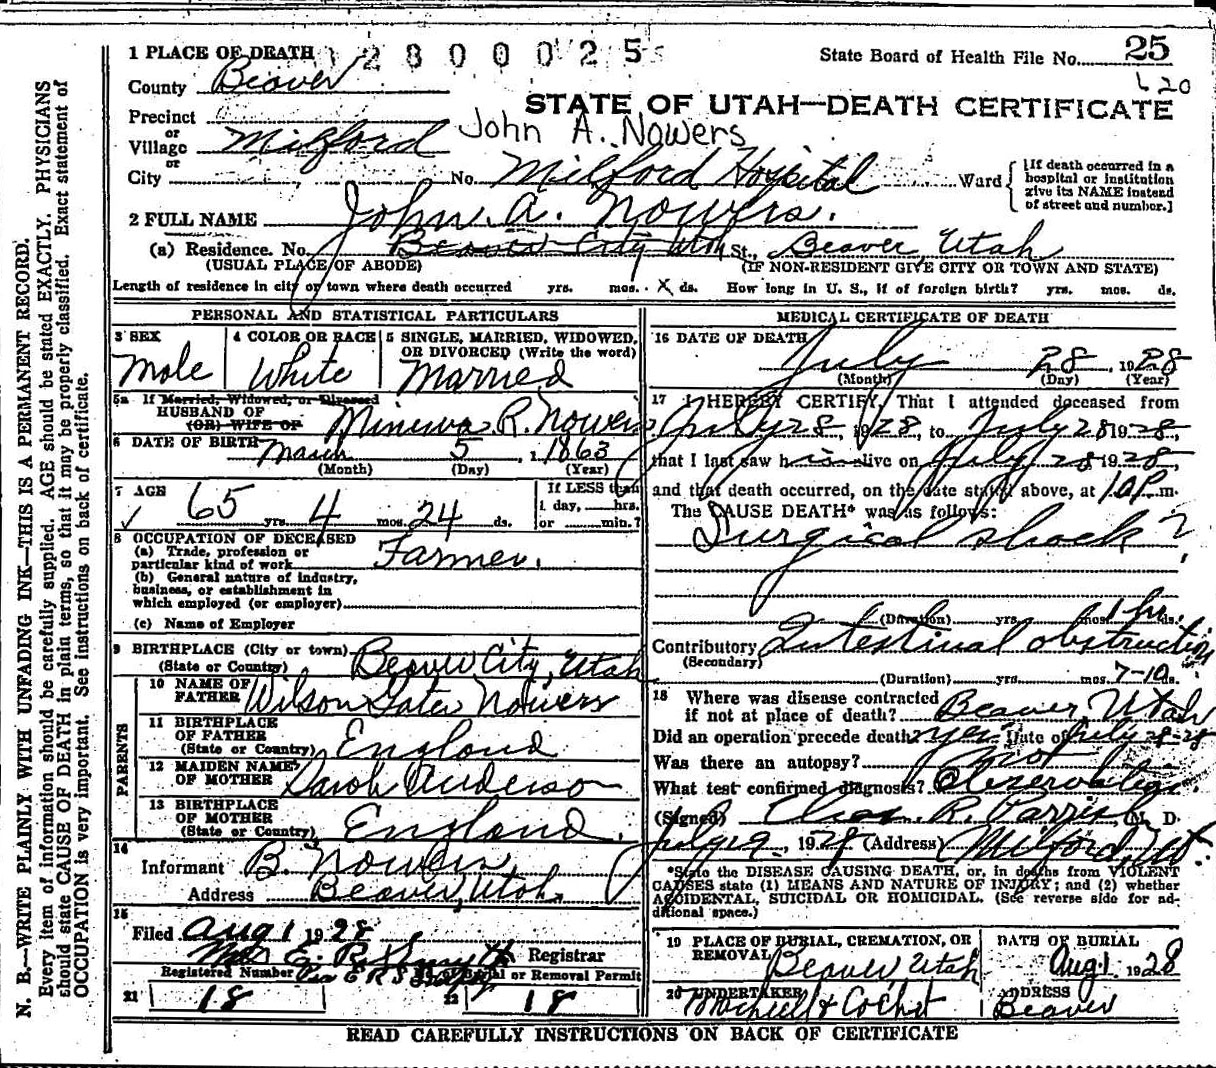 N. B.—WRITE PLAINLY WITH UNFADING INK—THIS IS A PERMANENT RECORD.
Every item of information should be carefully supplied. AGE should be stated EXACTLY. PHYSICIANS
should state CAUSE OF DEATH in plain terms, so that it may be properly classified. Exact statement of
OCCUPATION is very important. See instructions on back of certificate.
1 PLACE OF DEATH 2 8 0 0 0 2 5 State Board of Health File No. 25
County Beaver 620
STATE OF UTAH—DEATH CERTIFICATE
Precinct
or
Village Milford John A. Nowers
or
City No. Milford Hospital Ward
[If death occurred in a
hospital or institution
give its NAME instead
of street and number.]
2 FULL NAME John. A. Nowers.
(a) Residence. No. Beaver City Utah St., Beaver, Utah
(USUAL PLACE OF ABODE) (IF NON-RESIDENT GIVE CITY OR TOWN AND STATE)
Length of residence in city or town where death occurred yrs. mos. X ds. How long in U. S., if of foreign birth? yrs. mos. ds.
PERSONAL AND STATISTICAL PARTICULARS
3 SEX
Male
4 COLOR OR RACE
White
5 SINGLE, MARRIED, WIDOWED,
OR DIVORCED (Write the word)
Married
5a If Married, Widowed, or Divorced
HUSBAND OF
(OR) WIFE OF Minerva. R. Nowers
6 DATE OF BIRTH March 5 1863
(Month) (Day) (Year)
7 AGE
65 yrs. 4 mos. 24 ds.
If LESS than
1 day, hrs.
or min.?
8 OCCUPATION OF DECEASED
(a) Trade, profession or
particular kind of work Farmer.
(b) General nature of industry,
business, or establishment in
which employed (or employer)
(c) Name of Employer
9 BIRTHPLACE (City or town)
(State or Country) Beaver City, Utah
PARENTS
10 NAME OF
FATHER Wilson Gates Nowers
11 BIRTHPLACE
OF FATHER
(State or Country) England
12 MAIDEN NAME
OF MOTHER Sarah Anderson
13 BIRTHPLACE
OF MOTHER
(State or Country) England.
14
Informant B. Nowers
Address Beaver, Utah.
15
Filed Aug 1 1928
Registrar
Registered Number of Burial or Removal Permit
21 18 22 18
MEDICAL CERTIFICATE OF DEATH
16 DATE OF DEATH
July 28, 1928
(Month) (Day) (Year)
17 I HEREBY CERTIFY, That I attended deceased from
July 28, 1928, to July 28 1928,
that I last saw h is alive on July 28 1928,
and that death occurred, on the date stated above, at 10 P. m.
The CAUSE DEATH* was as follows:
Surgical shock?
(Duration) yrs. mos. 1 hr. ds.
Contributory Intestinal obstruction
(Secondary)
(Duration) yrs. mos. 7-10 ds.
18 Where was disease contracted
if not at place of death? Beaver, Utah
Did an operation precede death? yes. Date of July 28-28
Was there an autopsy? not
What test confirmed diagnosis? Observation.
(Signed) R. Parrish, M. D.
1928 (Address) Milford, Ut.
*State the DISEASE CAUSING DEATH, or, in deaths from VIOLENT
CAUSES state (1) MEANS AND NATURE OF INJURY; and (2) whether
ACCIDENTAL, SUICIDAL OR HOMICIDAL. (See reverse side for ad-
ditional space.)
19 PLACE OF BURIAL, CREMATION, OR
REMOVAL Beaver, Utah
DATE OF BURIAL
Aug 1 1928
20 UNDERTAKER
ADDRESS
Beaver
READ CAREFULLY INSTRUCTIONS ON BACK OF CERTIFICATE